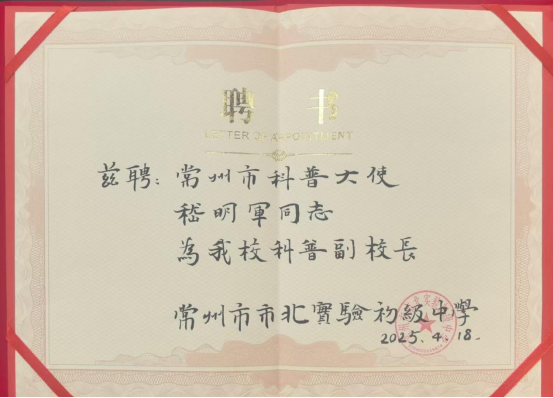 聘 书
LETTER OF APPOINTMENT
兹聘：常州市科普大使
嵇明軍同志
為我校科普副校長
常州市市北實驗初級中學
2025.4.18.